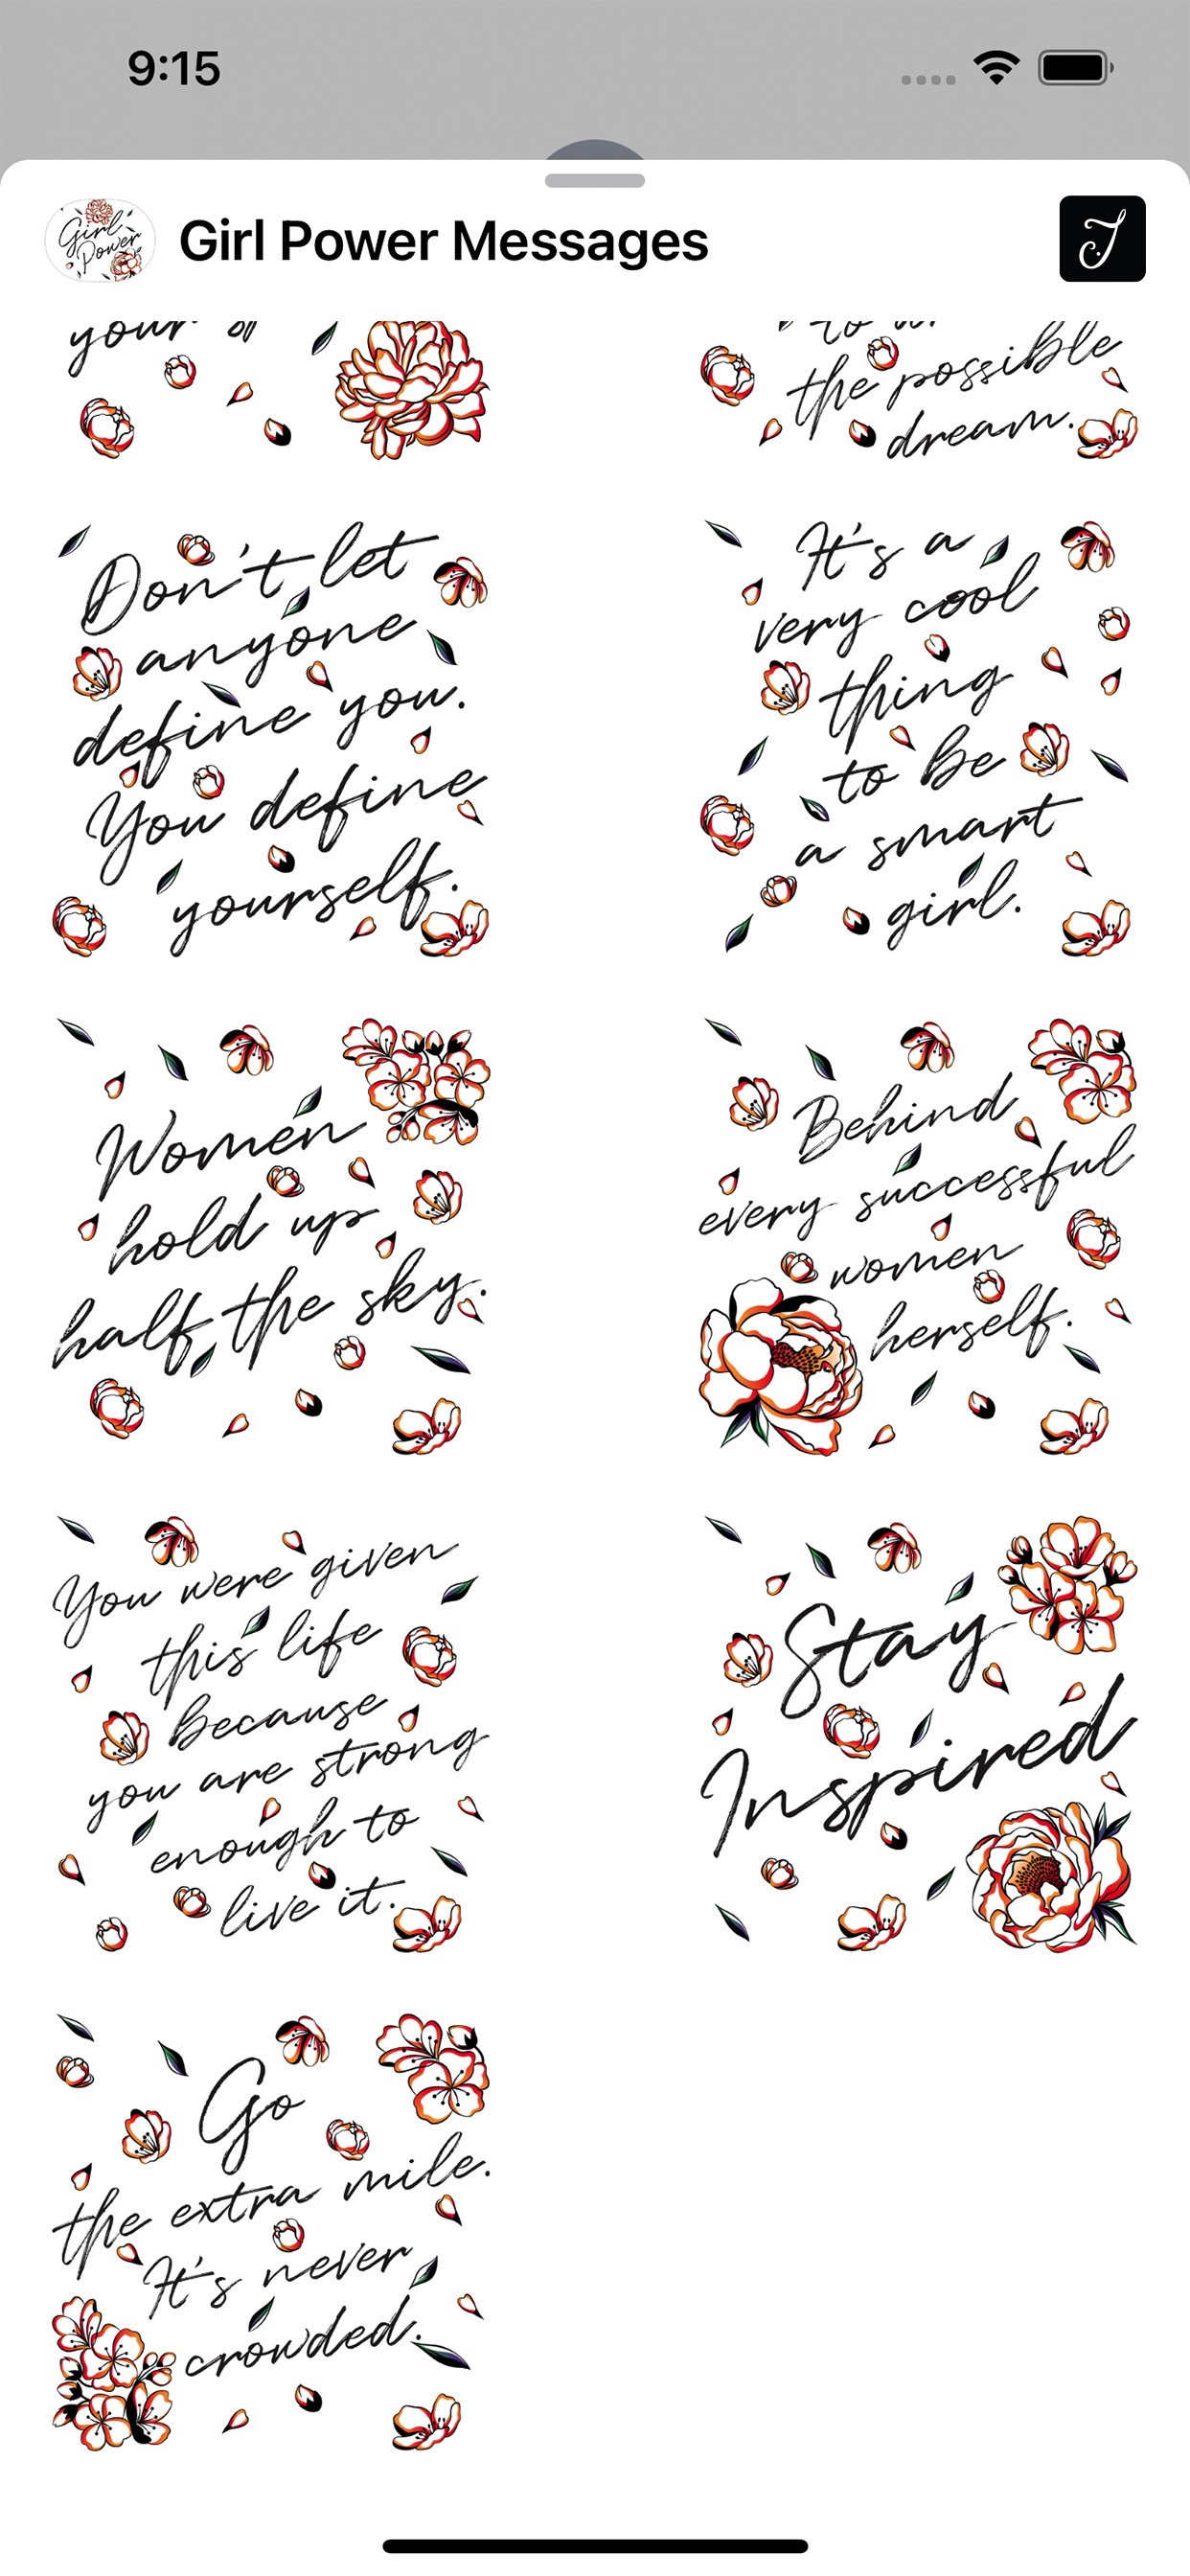 9:15
Girl Power
Girl Power Messages
J
your
the possible
dream.
Don't let
anyone
define you.
You define
yourself.
It's a
very cool
thing
to be
a smart
girl.
Women
hold up
half the sky.
Behind
every successful
women
herself.
You were given
this life
because
you are strong
enough to
live it.
Stay
Inspired
Go
the extra mile.
It's never
crowded.